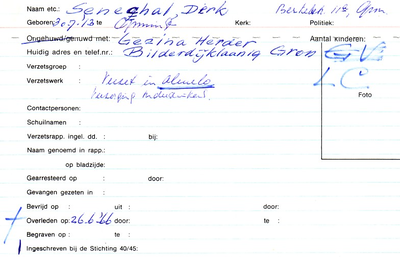 Naam etc.: Senechal Dirk
Geboren: 30.7.'13 te Ommen Kerk: Politiek:
Ongehuwd/gehuwd met: Gezina Herder Aantal kinderen:
Huidig adres en telef.nr.: Bilderdijklaan 19 Gron
Verzetsgroep :
Verzetswerk : Verzet in Almelo
Verzorging onderduikers.
Foto
Contactpersonen:
Schuilnaam :
Verzetsrapp. ingel. dd. : bij:
Naam genoemd in rapp.:
op bladzijde:
Gearresteerd op : door:
Gevangen gezeten in :
Bevrijd op : uit : door:
Overleden op: 26.6.'66 door: te :
Begraven op : te :
Ingeschreven bij de Stichting 40/45: